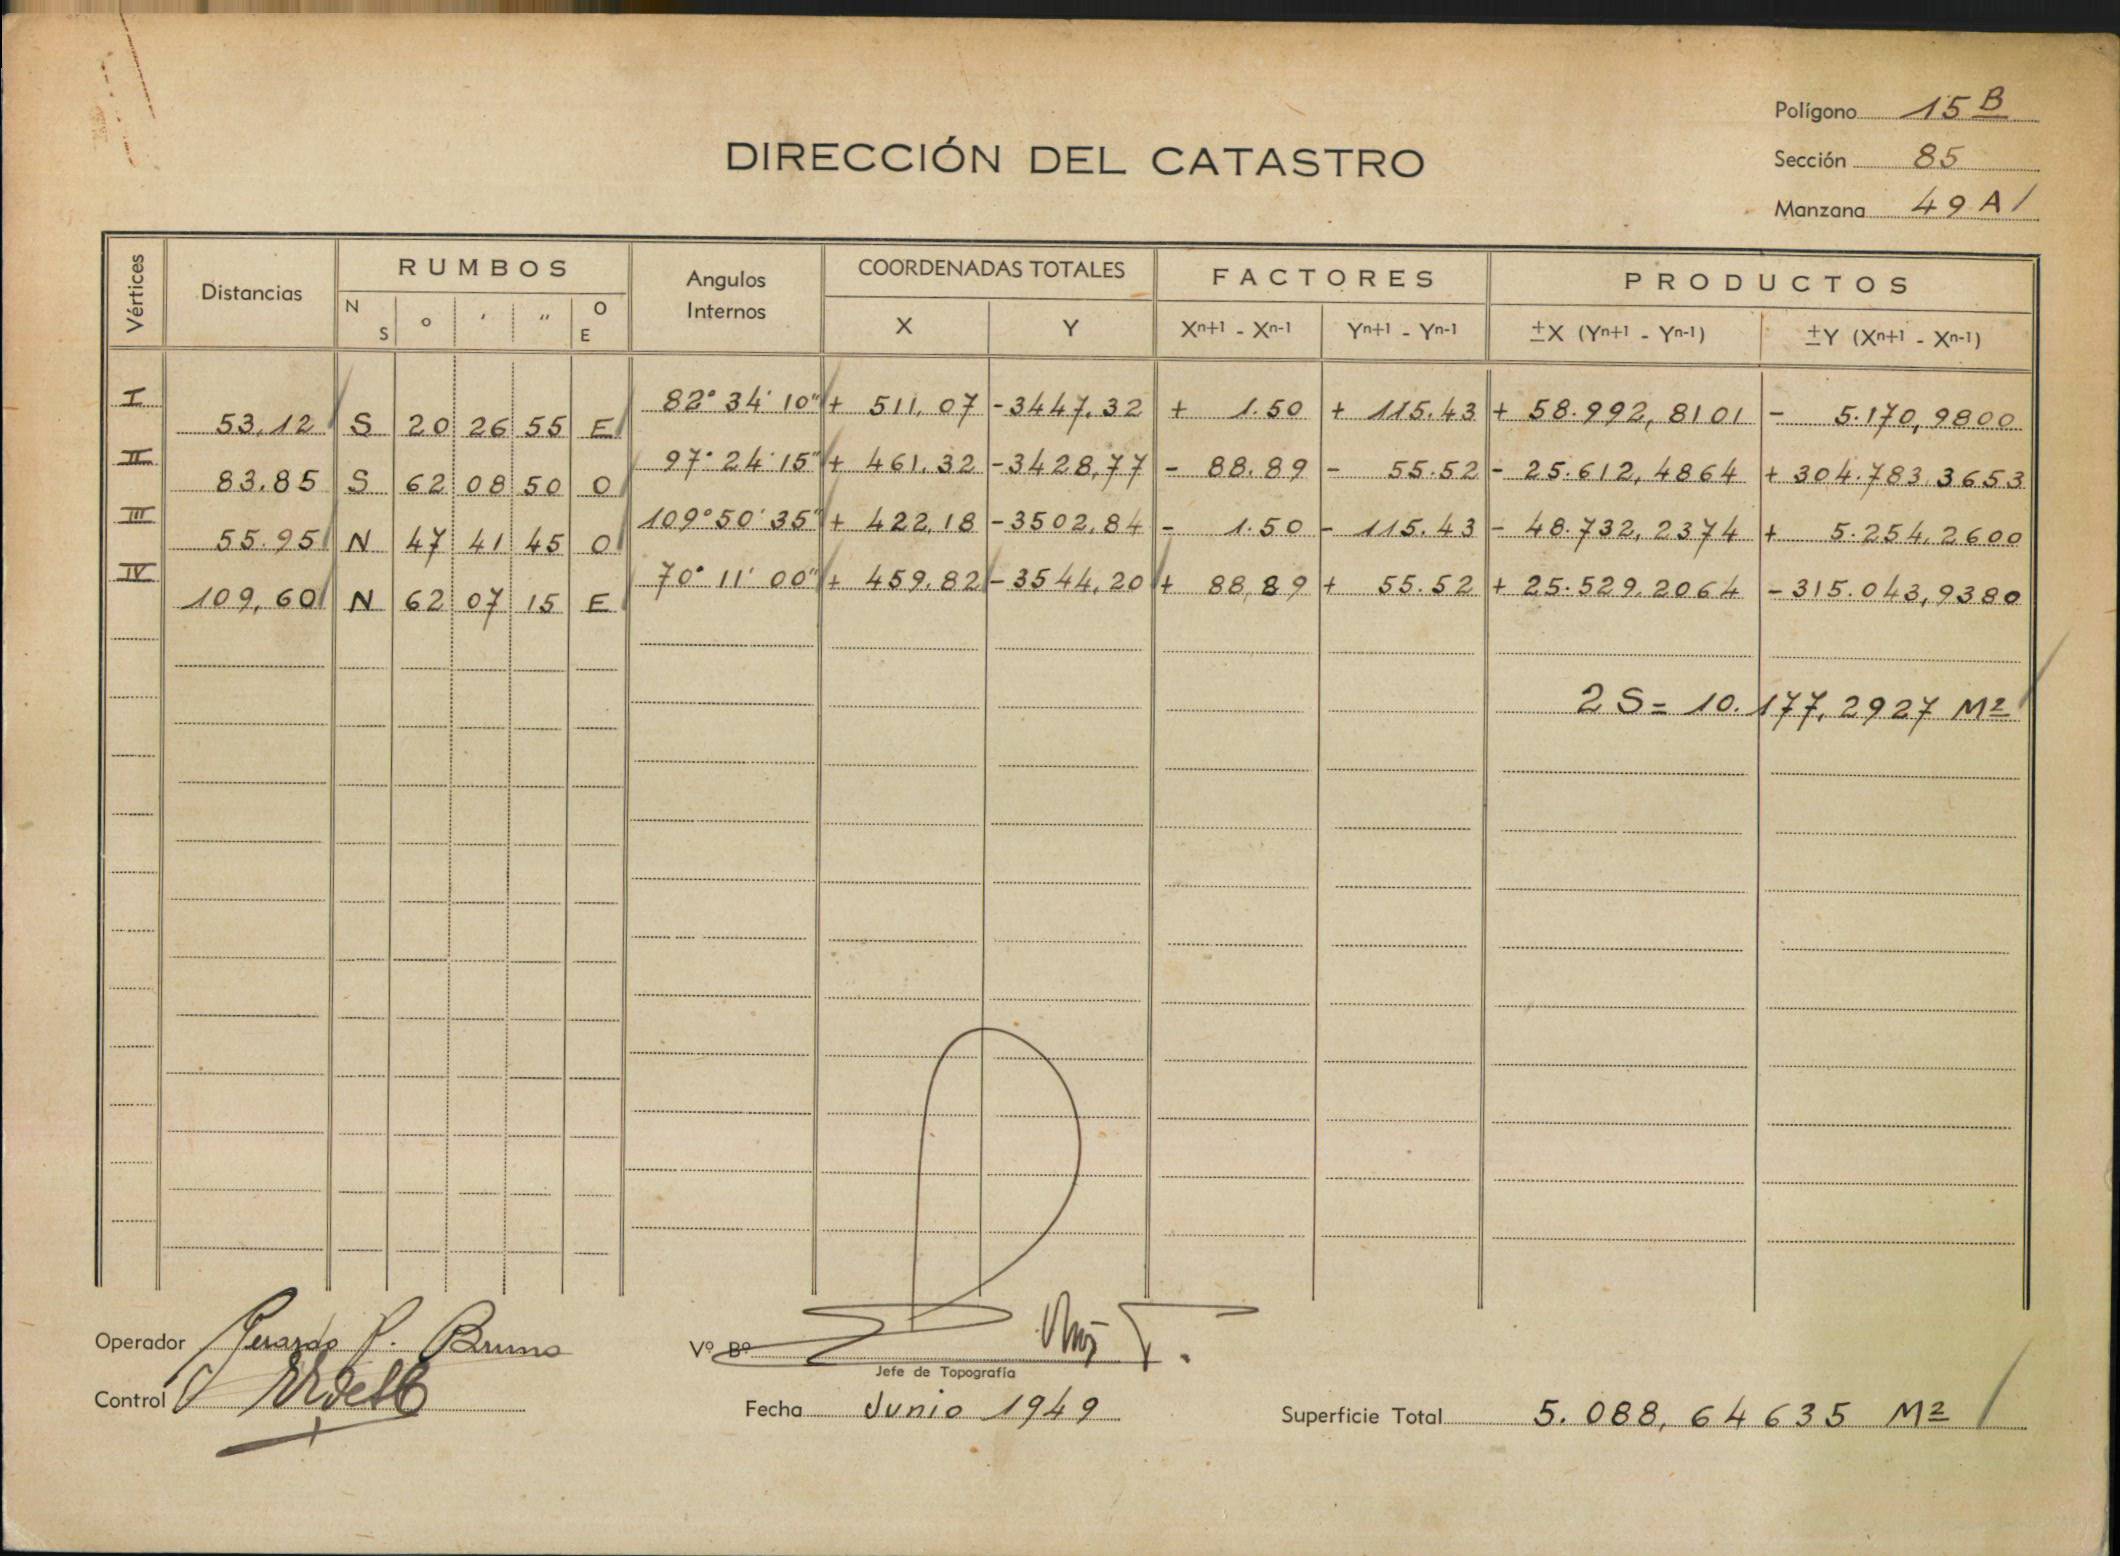 Polígono 15 B
DIRECCIÓN DEL CATASTRO
Sección 85
Manzana 49 A
Vértices Distancias RUMBOS Angulos Internos COORDENADAS TOTALES FACTORES PRODUCTOS
N S o ' " O E X Y Xn+1 - Xn-1 Yn+1 - Yn-1 ±X (Yn+1 - Yn-1) ±Y (Xn+1 - Xn-1)
I 82° 34' 10" + 511,07 -3447,32 + 1.50 + 115.43 + 58.992,8101 - 5.170,9800
53,12 S 20 26 55 E
II 97° 24' 15" + 461,32 -3428,77 - 88.89 - 55.52 - 25.612,4864 + 304.783,3653
83.85 S 62 08 50 O
III 109° 50' 35" + 422,18 -3502,84 - 1.50 - 115.43 - 48.732,2374 + 5.254,2600
55.95 N 47 41 45 O
IV 70° 11' 00" + 459,82 -3544,20 + 88,89 + 55.52 + 25.529,2064 -315.043,9380
109,60 N 62 07 15 E
2 S = 10.177,2927 M2
Operador Gerardo P. Bruno
Vº Bº
Jefe de Topografía
Control
Fecha Junio 1949
Superficie Total 5.088,64635 M2